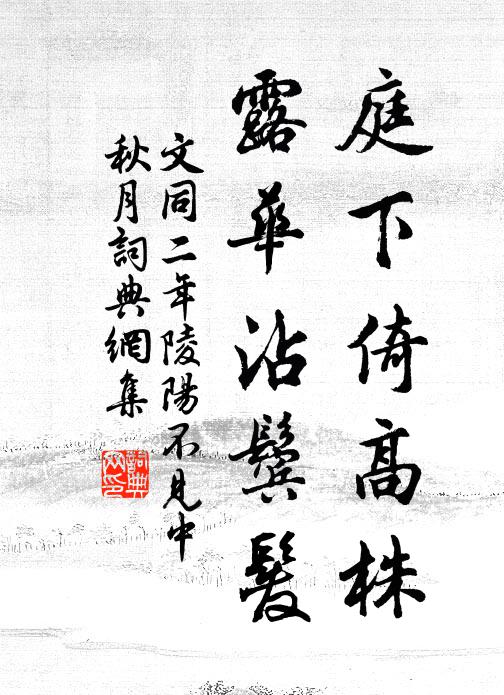 庭下倚高株
露華沾鬢髮
文同二年陵陽不見中
秋月詞典網集
詞典網印